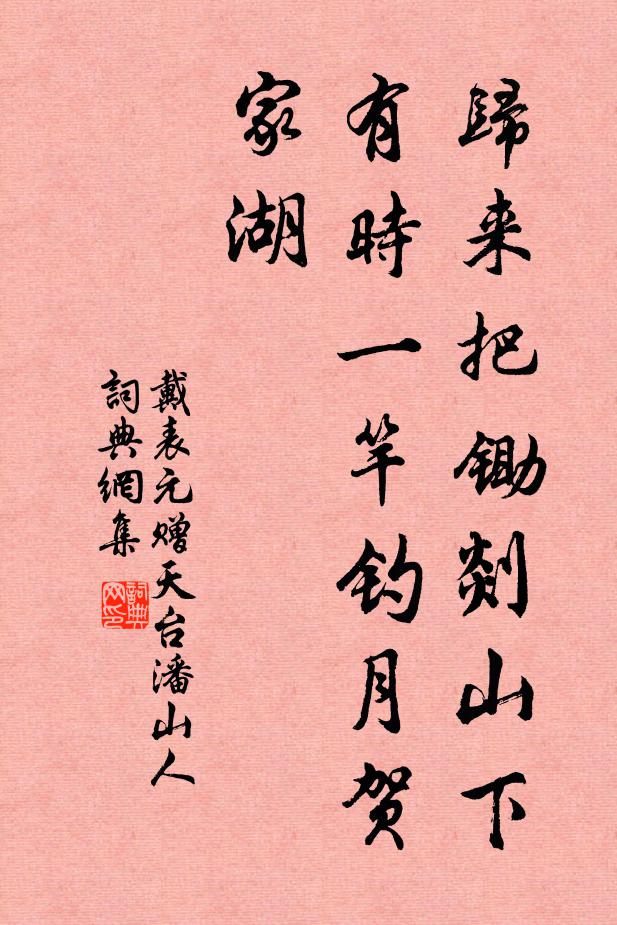 歸来把鋤剡山下
有時一竿钓月贺
家湖
戴表元赠天台潘山人
詞典網集
詞典網印